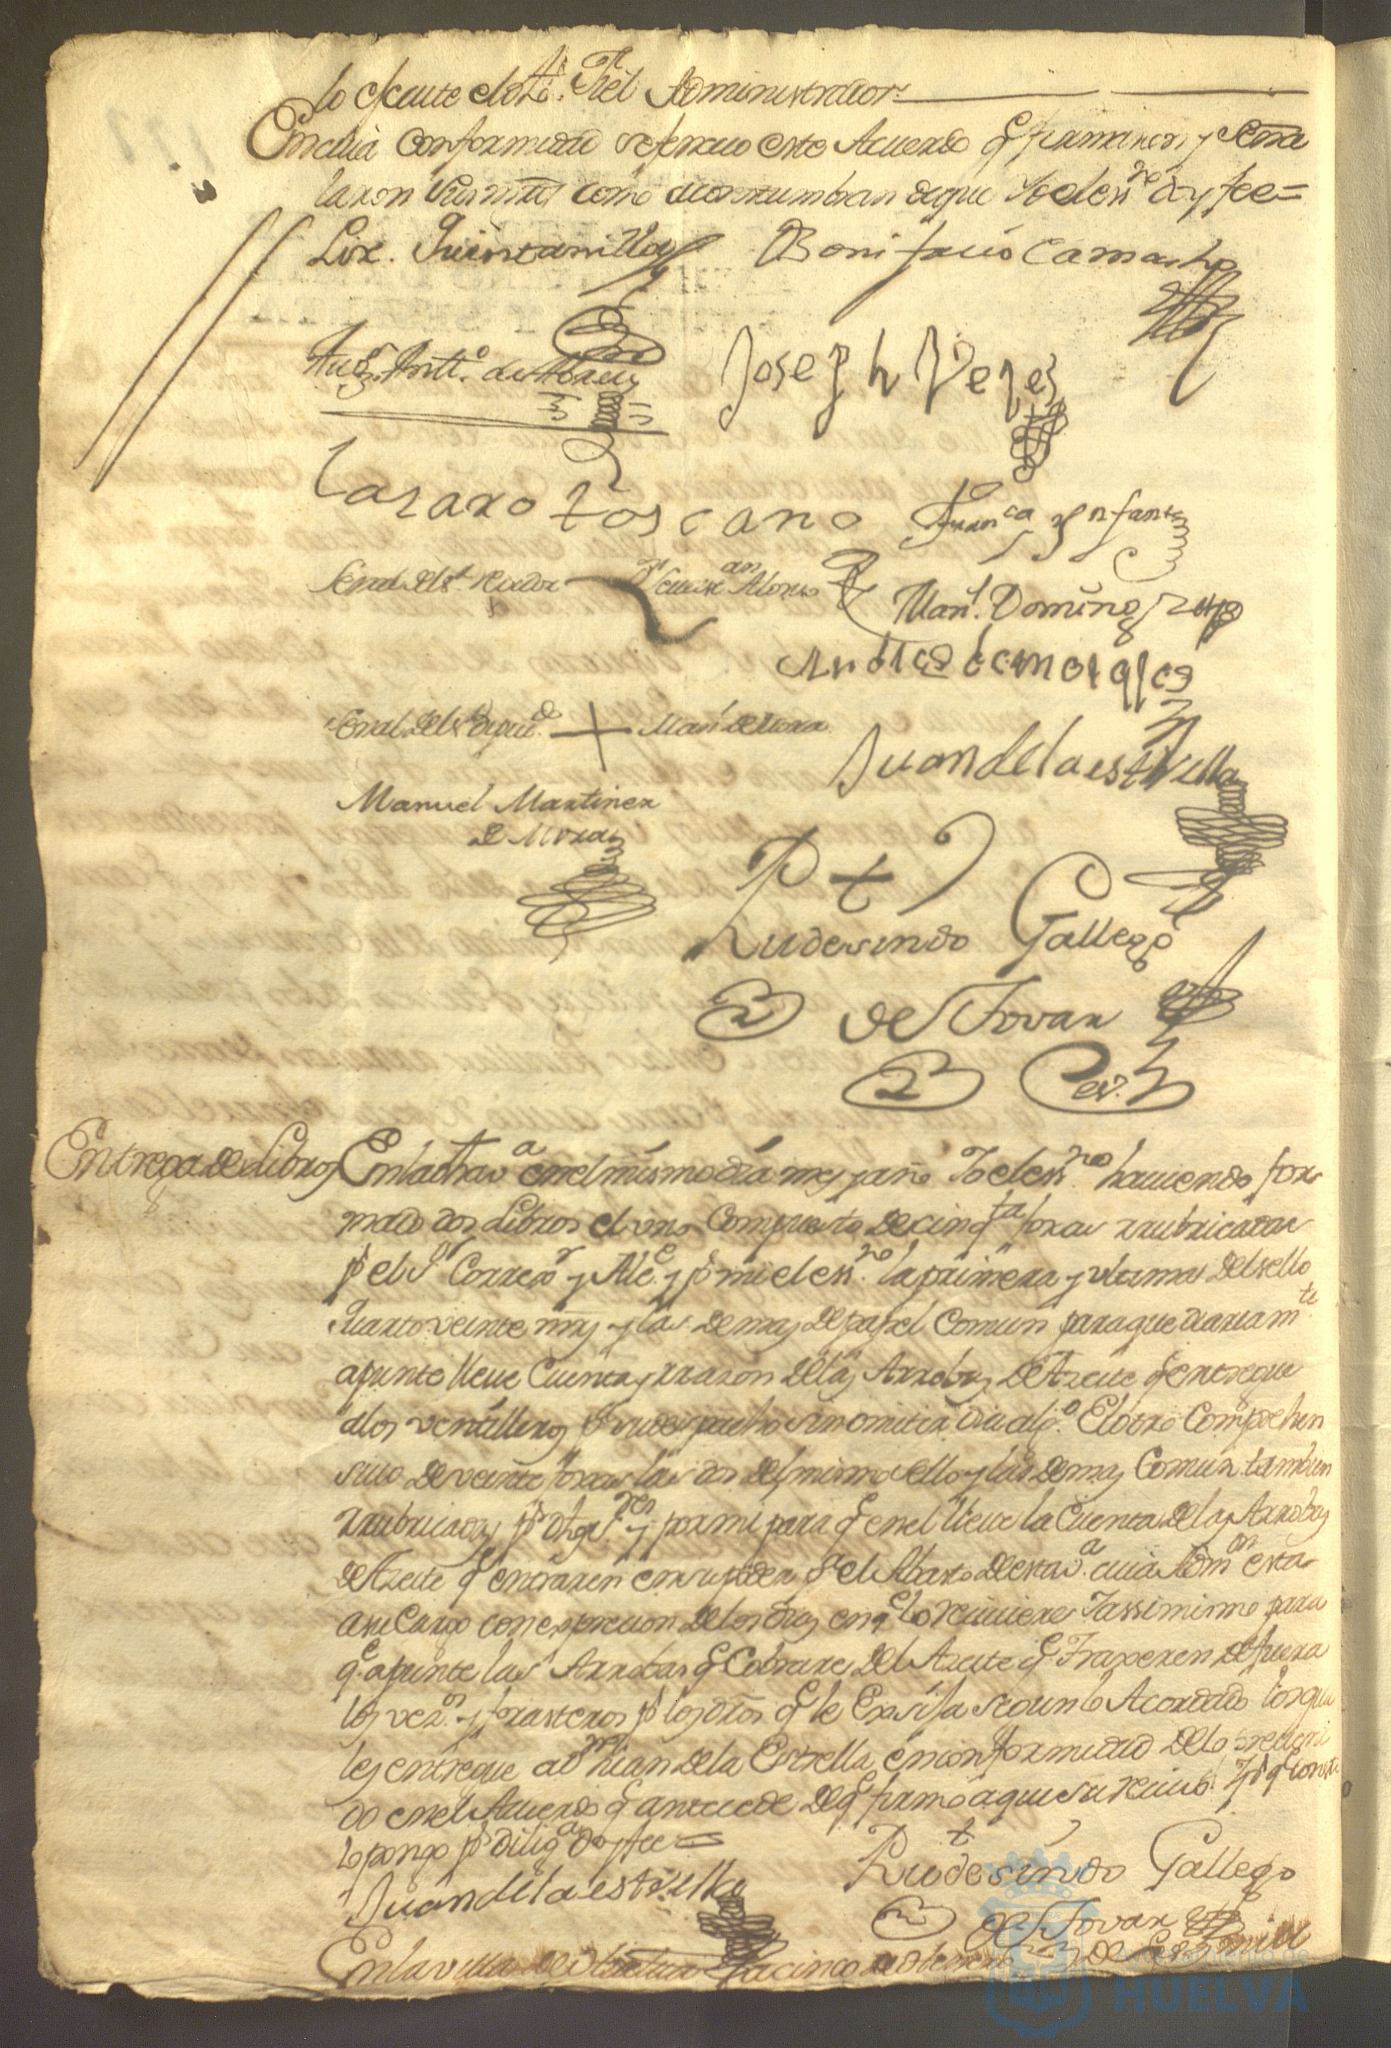 lo execute el dho. Fiel Administrador
En cuia conformidad se feneció este Acuerdo q̃ firmaron y Seña
laron sus mrds como acostumbran de que Yo el essno doy fee=
Liz. Quintanilla Bonifacio Camacho
Augn. Antto. de Abreu Joseph Vejes
Lasaro toscano Franca. Ynfante
Señal del sr. rexidor Vicente Alonso Manl. Domingues
Señal del sr. Diputdo. + Manl. de Mora
Juan de la estrella
Manuel Martinez
de Mora
Rudesindo Gallego
de Tovar
Esn.
Entrega de Libros En la dha va. en el mismo dia mes y año Yo el essno. haviendo for
mado dos Libros el uno Compuesto de cinqta. foxas rrubricadas
pr el Sr Correxr y Alce. y pr mi el essno. la primera y ultima del sello
quarto veinte mrs y las demas de papel Comun para que diariamte.
apunte lleve Cuenta y rrazon de las Arrobas de Azeite q̃ entregue
alos ventilleros pr su despacho sin omitir dia algo. El otro Comprehen
sivo de veinte foxas las dos del mismo sello y las demas Comun tambien
rrubricadas pr dhos. Sres. y por mi para q̃ en el lleve la Cuenta de las Arrobas
de Azeite q̃ entraren en su poder pr el Abasto de esta va. cuia Admon esta
a su Cargo con expresion de los dias en q̃ lo reciviere Y assimismo para
q̃ apunte las Arrobas q̃ Cobrare del Azeite q̃ Traxeren de fuera
los vezos. y forasteros pr los dros q̃ le Exsija segun lo Acordado los qua
les entregue a dho Juan de la Estrella en conformidad de lo preveni
do en el Acuerdo q̃ antecede de q̃ firmo aqui su recivo. Y pa q̃ conste
lo pongo pr dilixa. doy fee=
Juan de la estrella Rudesindo Gallego
de Tovar
En la villa de Huelva a cinco
HUELVA